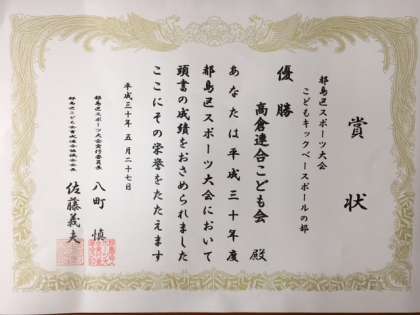 賞状
都島区スポーツ大会
こどもキックベースボールの部
優勝
高倉連合こども会 殿
あなたは平成三十年度
都島区スポーツ大会において
頭書の成績をおさめられました
ここにその栄誉をたたえます
平成三十年 五月二十七日
都島区スポーツ大会実行委員長
八町 慎
佐藤義夫